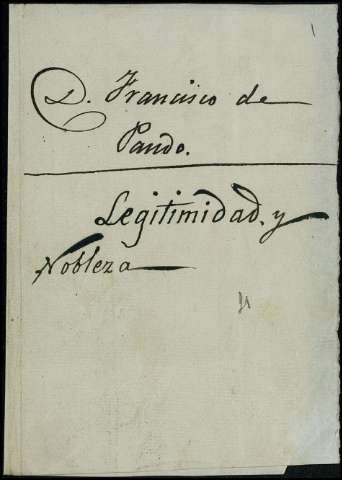 D. Francisco de
Pando.
Legitimidad, y
Nobleza